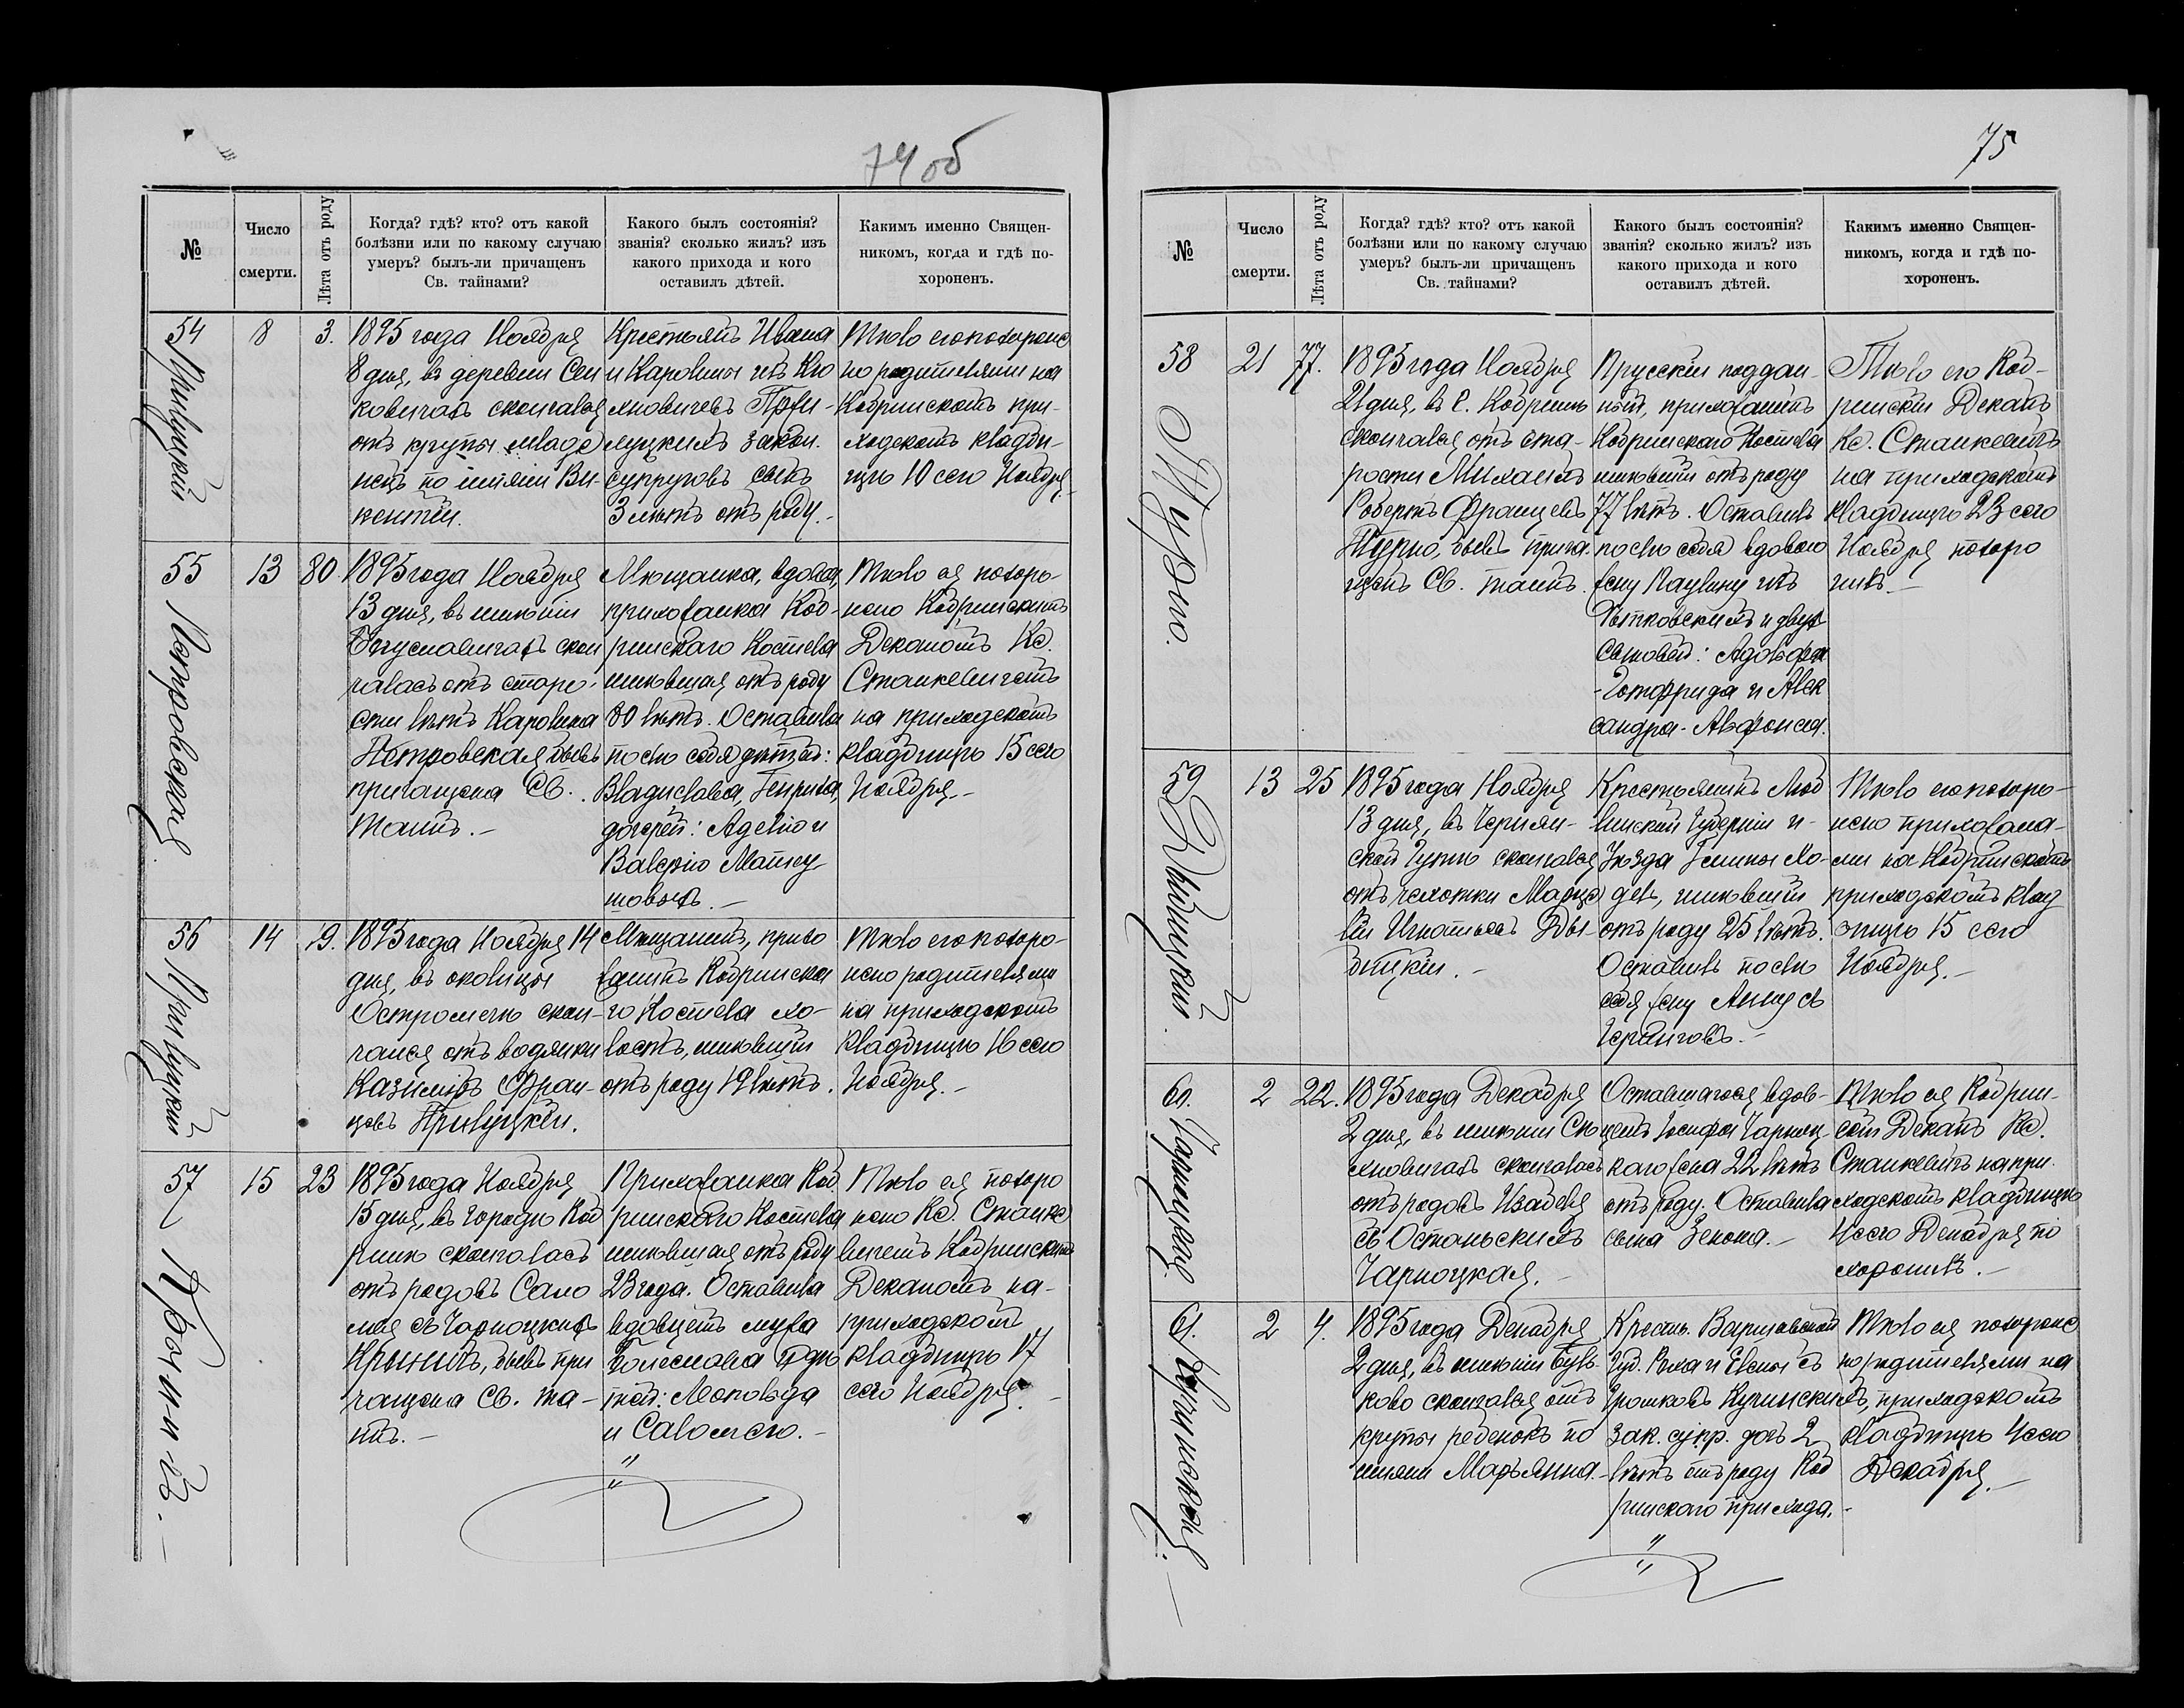 74 об
№
Число
смерти.
Лѣта отъ роду
Когда? гдѣ? кто? отъ какой
болѣзни или по какому случаю
умеръ? былъ-ли причащенъ
Св. тайнами?
Какого былъ состоянія?
званія? сколько жилъ? изъ
какого прихода и кого
оставилъ дѣтей.
Какимъ именно Священ-
никомъ, когда и гдѣ по-
хороненъ.
54
8
3.
1895 года Ноября
8 дня, въ деревни Сен
ковичахъ скончался
отъ крупы младе
нецъ по имени Ви-
кентій.
Крестьянъ Ивана
и Каролины изъ
законн.
супруговъ сынъ
3 лѣтъ отъ роду.-
Тѣло его похороне
но родителями на
Кобринскомъ при-
ходскомъ кладби-
щѣ 10 сего Ноября
55
Петровская
13
80
1895 года Ноября
13 дня, въ имѣніи
Богуславичахъ скон
чалась отъ старо-
сти лѣтъ Каролина
Петровская бывъ
причащена Св.
Таинъ.-
Мѣщанка, вдова,
прихожанка Коб-
ринскаго Костела
имѣвшая отъ роду
80 лѣтъ. Оставила
послѣ себя дѣтей:
Владислава, Генриха,
дочерей: Аделію и
Валерію
Тѣло ея похоро-
нено Кобринскимъ
Деканомъ Кс.
Станкевичемъ
на приходскомъ
кладбищѣ 15 сего
Ноября.-
56
Прилуцкій
14
19.
1895 года Ноября 14
дня, въ околицы
Остромечь скон-
чался отъ водянки
Казиміръ Фран-
цовъ Прилуцкій.
Мѣщанинъ, прихо
жанинъ Кобринска
го Костела хо-
лостъ, имѣвшій
отъ роду 19 лѣтъ.
Тѣло его похоро-
нено родителями
на приходскомъ
кладбищѣ 16 сего
Ноября.-
57
15
23
1895 года Ноября
15 дня, въ городѣ Коб
ринѣ скончалась
отъ родовъ Сало
мея съ Чарноцкихъ
бывъ при
чащена Св. Та-
инъ.-
Прихожанка Коб
ринскаго Костела
имѣвшая отъ роду
23 года. Оставила
вдовцемъ мужа
Болеслава дѣ
тей: Леопольда
и Саломею.-
Тѣло ея похоро
нено Кс. Станке
вичемъ Кобринскимъ
Деканомъ на
приходскомъ
кладбищѣ 17
сего Ноября.-
75
№
Число
смерти.
Лѣта отъ роду
Когда? гдѣ? кто? отъ какой
болѣзни или по какому случаю
умеръ? былъ-ли причащенъ
Св. тайнами?
Какого былъ состоянія?
званія? сколько жилъ? изъ
какого прихода и кого
оставилъ дѣтей.
Какимъ именно Священ-
никомъ, когда и гдѣ по-
хороненъ.
58
Турно.
21
77.
1895 года Ноября
21 дня, въ г. Кобринѣ
скончался отъ ста-
рости Михаилъ
Робертъ Францевъ
Турно, бывъ прича-
щенъ Св. Таинъ.
Прусскій поддан-
ный, прихожанинъ
Кобринскаго Костела
имѣвшій отъ роду
77 лѣтъ. Оставивъ
послѣ себя вдовою
жену Паулину изъ
и двухъ
сыновей: Адольфа
-Готфрида и Алек
сандра-Альфонса.
Тѣло его Коб-
ринскій Деканъ
Кс. Станкевичъ
на приходскомъ
кладбищѣ 23 сего
Ноября похоро
нилъ.-
59
13
25
1895 года Ноября
13 дня, въ Черіян-
ской Гутѣ скончался
отъ чахотки Марце
лій Игнатьевъ Дыь-
бицкій.-
Крестьянинъ Люб
линской Губерніи и
Уѣзда Гмины Хо-
дель, имѣвшій
отъ роду 25 лѣтъ.
Оставивъ послѣ
себя жену Анну съ
Тѣло его похоро-
нено прихожана-
ми на Кобринскомъ
приходскомъ клад
бищѣ 15 сего
Ноября.-
60.
Чарноцкая.
2
22.
1895 года Декабря
2 дня, въ имѣніи Сѣ
хновичахъ скончалась
отъ родовъ Изабеля
съ Остоньскихъ
Чарноцкая.
Оставшагося вдов-
цемъ Іосифа Чарноц-
каго жена 22 лѣтъ
отъ роду. Оставила
сына Зенона.-
Тѣло ея Кобрин-
скій Деканъ Кс.
Станкевичъ на при-
ходскомъ кладбищѣ
4 сего Декабря по
хоронилъ.-
61.
Кучинская.-
2
4.
1895 года Декабря
2 дня, въ имѣніи Буль-
ково скончалась отъ
крупы ребенокъ по
имени Марьянна.-
Крестьян. Варшавской
Губ. Роха и Елены съ
Грошковъ Кучинскихъ,
зак. супр. дочь 2
лѣтъ отъ роду Коб
ринскаго прихода.-
Тѣло ея похороне
но родителями на
приходскомъ
кладбищѣ 4 сего
Декабря.-